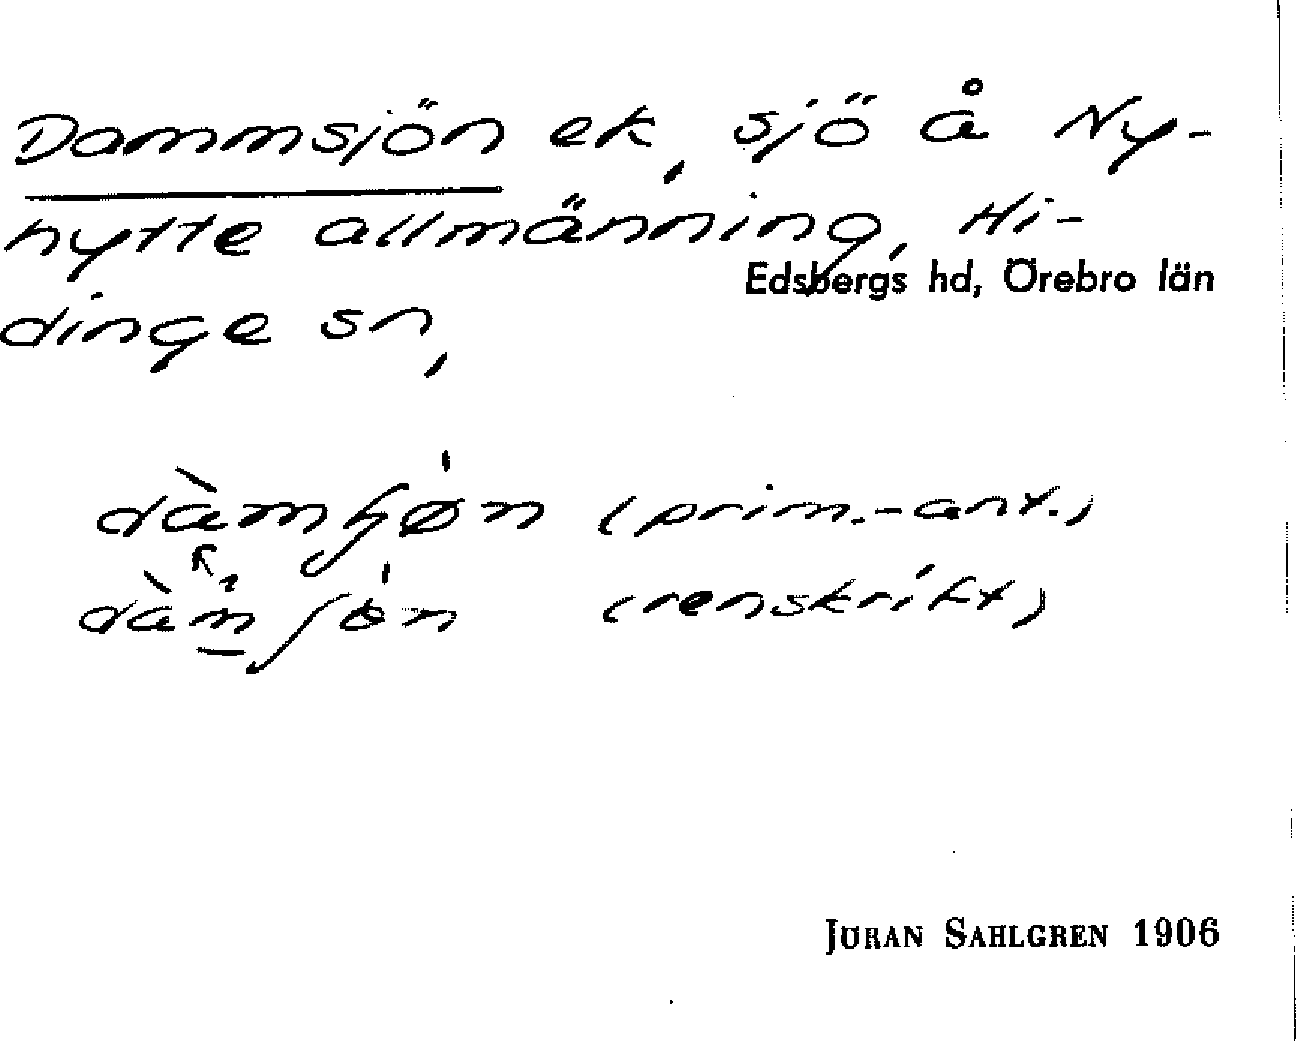 Dammsjön ek, sjö å Ny-
hytte allmänning, Hi-
Edsbergs hd, Örebro län
dinge sn,
(prim.-ant.)
(renskrift)
JÖRAN SAHLGREN 1906